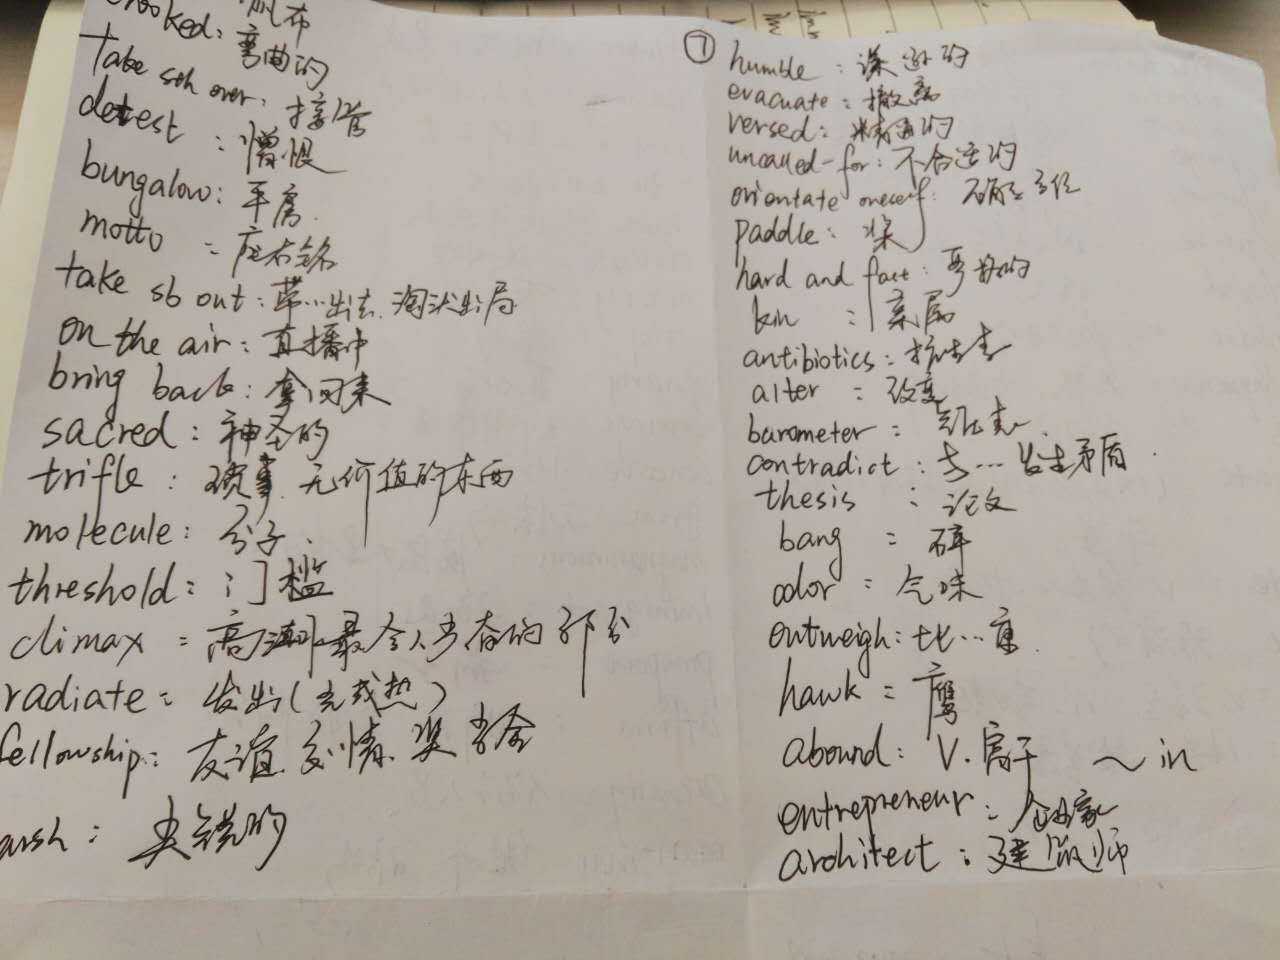 帆布
crooked: 弯曲的
take sth over: 接管
detest : 憎恨
bungalow: 平房
motto : 座右铭
take sb out: 带…出去、淘汰出局
on the air: 直播中
bring back: 拿回来
sacred: 神圣的
trifle: 琐事、无价值的东西
molecule: 分子
threshold: 门槛
climax : 高潮 最令人兴奋的部分
radiate: 发出(光或热)
fellowship: 友谊、交情、奖学金
⑦ humble : 谦逊的
evacuate : 撤离
versed: 精通的
uncalled-for: 不合适的
orientate oneself: 确定方位
paddle: 桨
hard and fast:
kin : 亲属
antibiotics: 抗生素
alter : 改变
barometer : 气压表
contradict : 与…发生矛盾
thesis : 论文
bang : 砰
odor : 气味
outweigh: 比…重
hawk : 鹰
abound: V. 富于 ~ in
entrepreneur: 企业家
architect: 建筑师